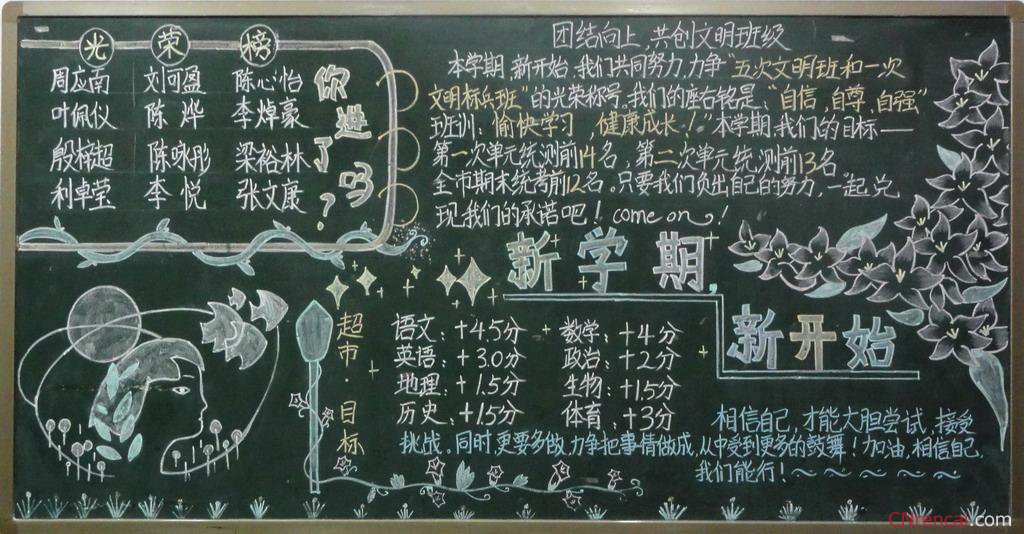 光荣榜
周应南 刘可盈 陈心怡
叶佩仪 陈烨 李焯豪
殷梓超 陈咏彤 梁裕林
利卓莹 李悦 张文康
你进了吗？
团结向上,共创文明班级
本学期,新开始,我们共同努力,力争"五次文明班和一次
文明标兵班"的光荣称号。我们的座右铭是："自信,自尊,自强"
班训：愉快学习,健康成长！"本学期我们的目标——
第一次单元统测前14名,第二次单元统测前13名
全市期末统考前12名。只要我们负出自己的努力,一起兑
现我们的承诺吧！come on！
新学期,
新开始
超市·目标
语文：+4.5分 数学：+4分
英语：+3.0分 政治：+2分
地理：+1.5分 生物：+1.5分
历史：+1.5分 体育：+3分
相信自己,才能大胆尝试,接受
挑战。同时,更要多做,力争把事情做成,从中受到更多的鼓舞！加油,相信自己,
我们能行！～～～～～
CNrencai.com